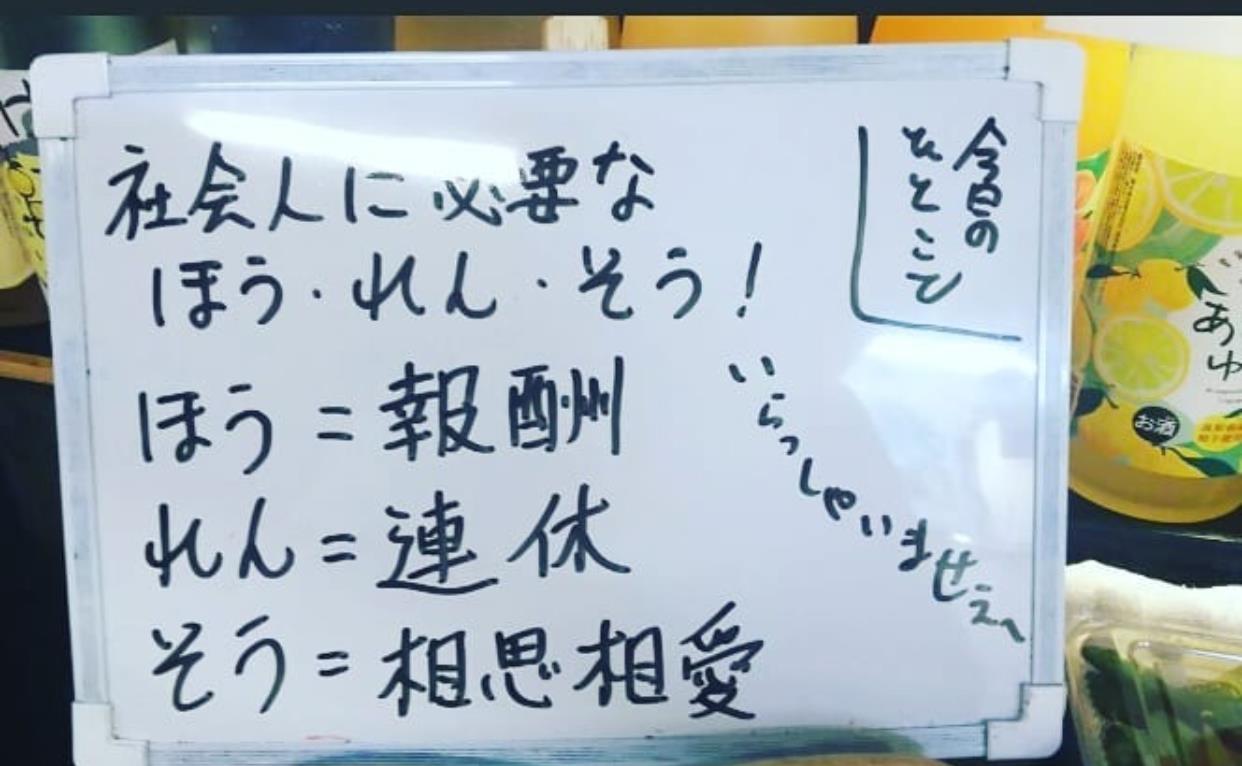 今日の
ひとこと
社会人に必要な
ほう・れん・そう!
ほう=報酬
れん=連休
そう=相思相愛
いらっしゃいませえ〜
あ
ゆ
お酒